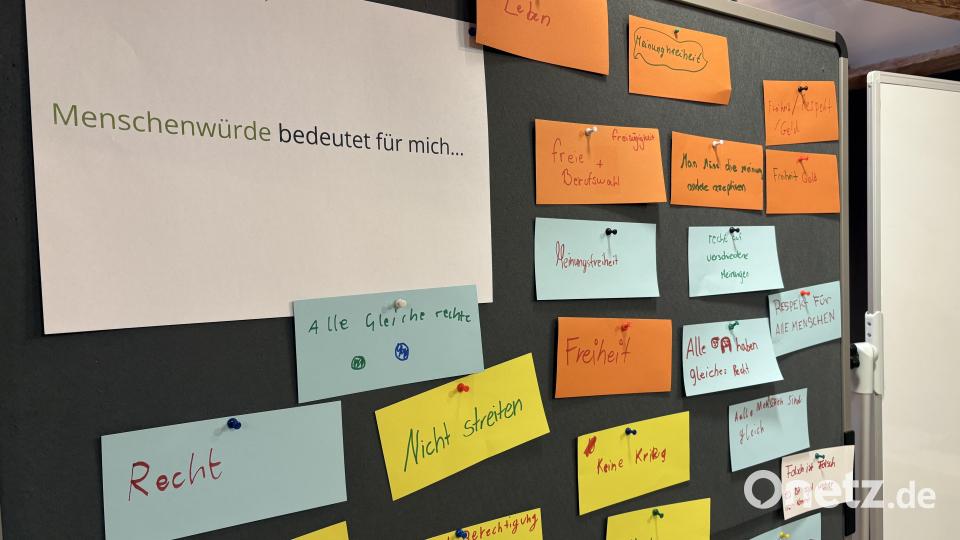 Menschenwürde bedeutet für mich...
Leben
Meinungfreiheit
Freiheit/Respekt
/Geld
freizügigkeit
freie +
Berufswahl
Man muss die meinung
akzeptieren
Freiheit Geld
Meinungsfreiheit
recht auf
verschiedene
Meinungen
RESPEKT FÜR
AllE MENSCHEN
Alle Gleiche rechte
Freiheit
Alle haben
gleiches Recht
Nicht streiten
Alle Menschen sind
gleich
Recht
Keine Krieg
Falsch ist Falsch
Onetz.de